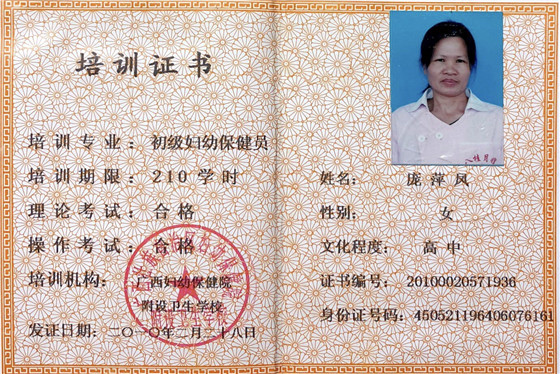 培训证书
培训专业：初级妇幼保健员
培训期限：210学时
理论考试：合格
操作考试：合格
培训机构：广西妇幼保健院
附设卫生学校
发证日期：二〇一〇年二月二十八日
姓名：庞萍凤
性别：女
文化程度：高中
证书编号：20100020571936
身份证号码：450521196406076161